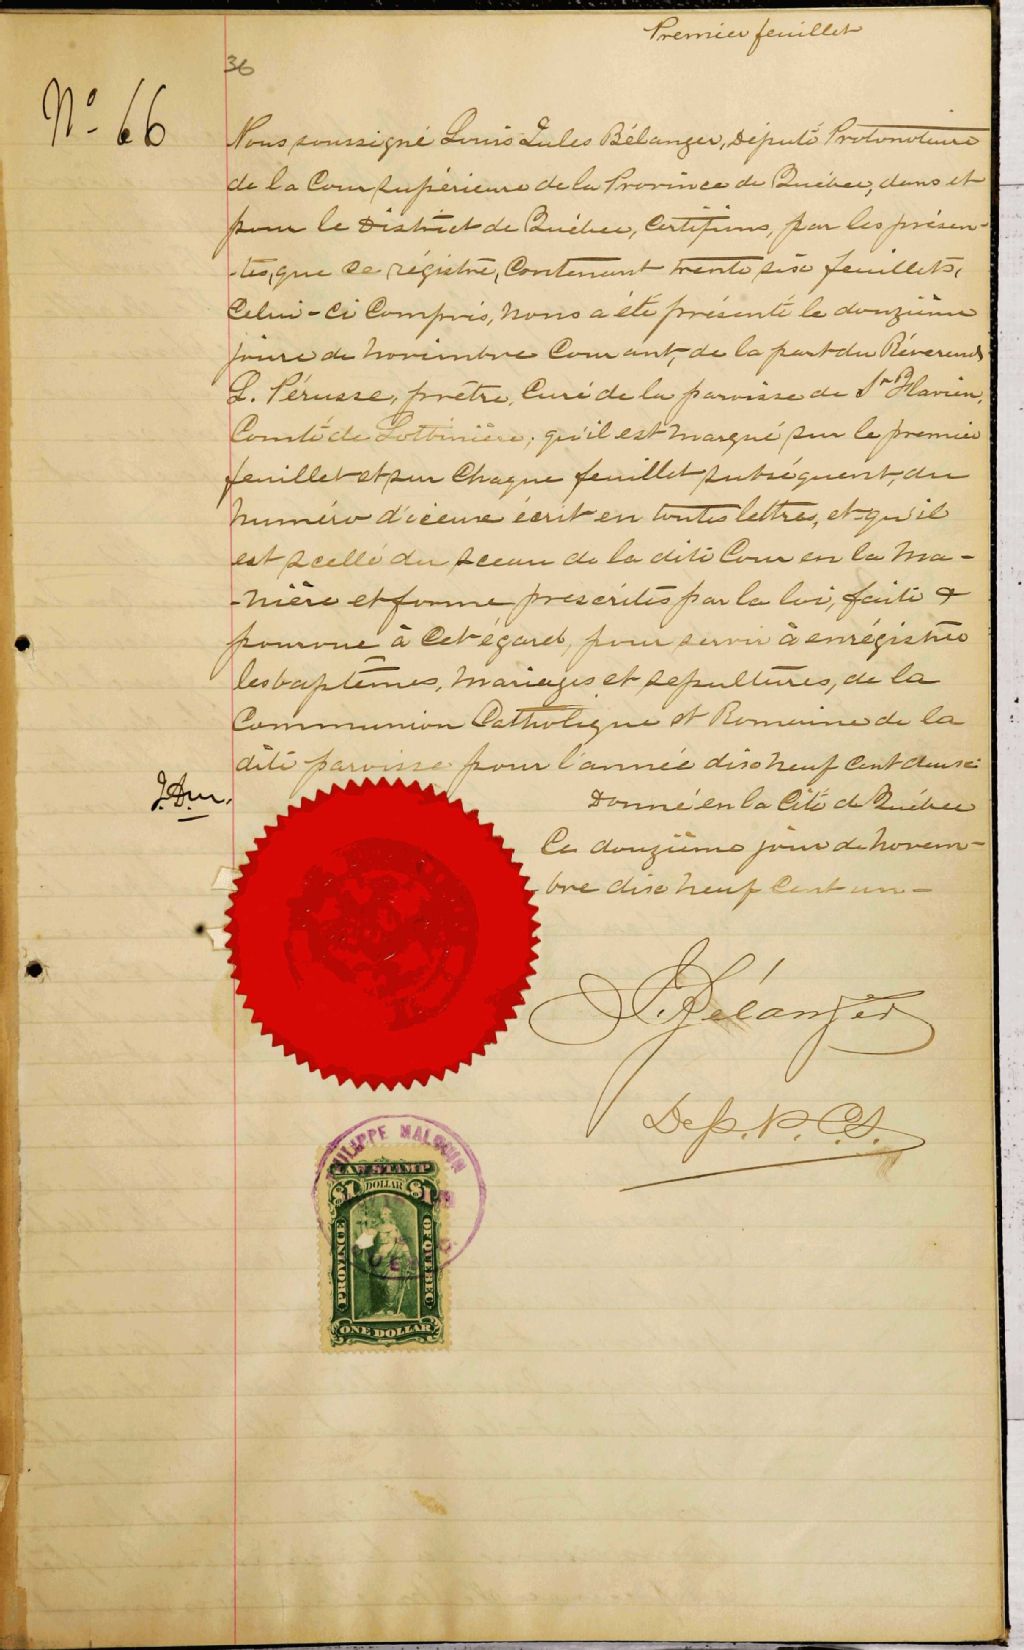 Premier feuillet
36
Nº 66
Nous soussigné Louis Jules Bélanger, Député Protonotaire
de la Cour Supérieure de la Province de Québec, dans et
pour le District de Québec, Certifions, par les présen-
-tes, que ce régistre, Contenant trente six feuillets,
Celui-ci Compris, nous a été présenté le douzième
jour de novembre Courant, de la part du Révérend
L. Pérusse, prêtre, Curé de la paroisse de St Flavien,
Comté de Lotbinière, qu'il est marqué sur le premier
feuillet et sur Chaque feuillet subséquent, du
numéro d'iceux écrit en toutes lettres, et qu'il
est scellé du sceau de la dite Cour en la ma-
-nière et forme prescrites par la loi, faite &
pourvue à Cet égard, pour servir à enrégistrer
les baptêmes, mariages et sepultures, de la
Communion Catholique et Romaine de la
dite paroisse pour l'année dix neuf Cent deux
Donné en la Cité de Québec
Ce douzième jour de novem-
bre dix neuf Cent un -
Bélanger
Dep. P. C. S.
PHILIPPE MALOUIN
LAW STAMP
$1 DOLLAR $1
PROVINCE
OF QUEBEC
ONE DOLLAR